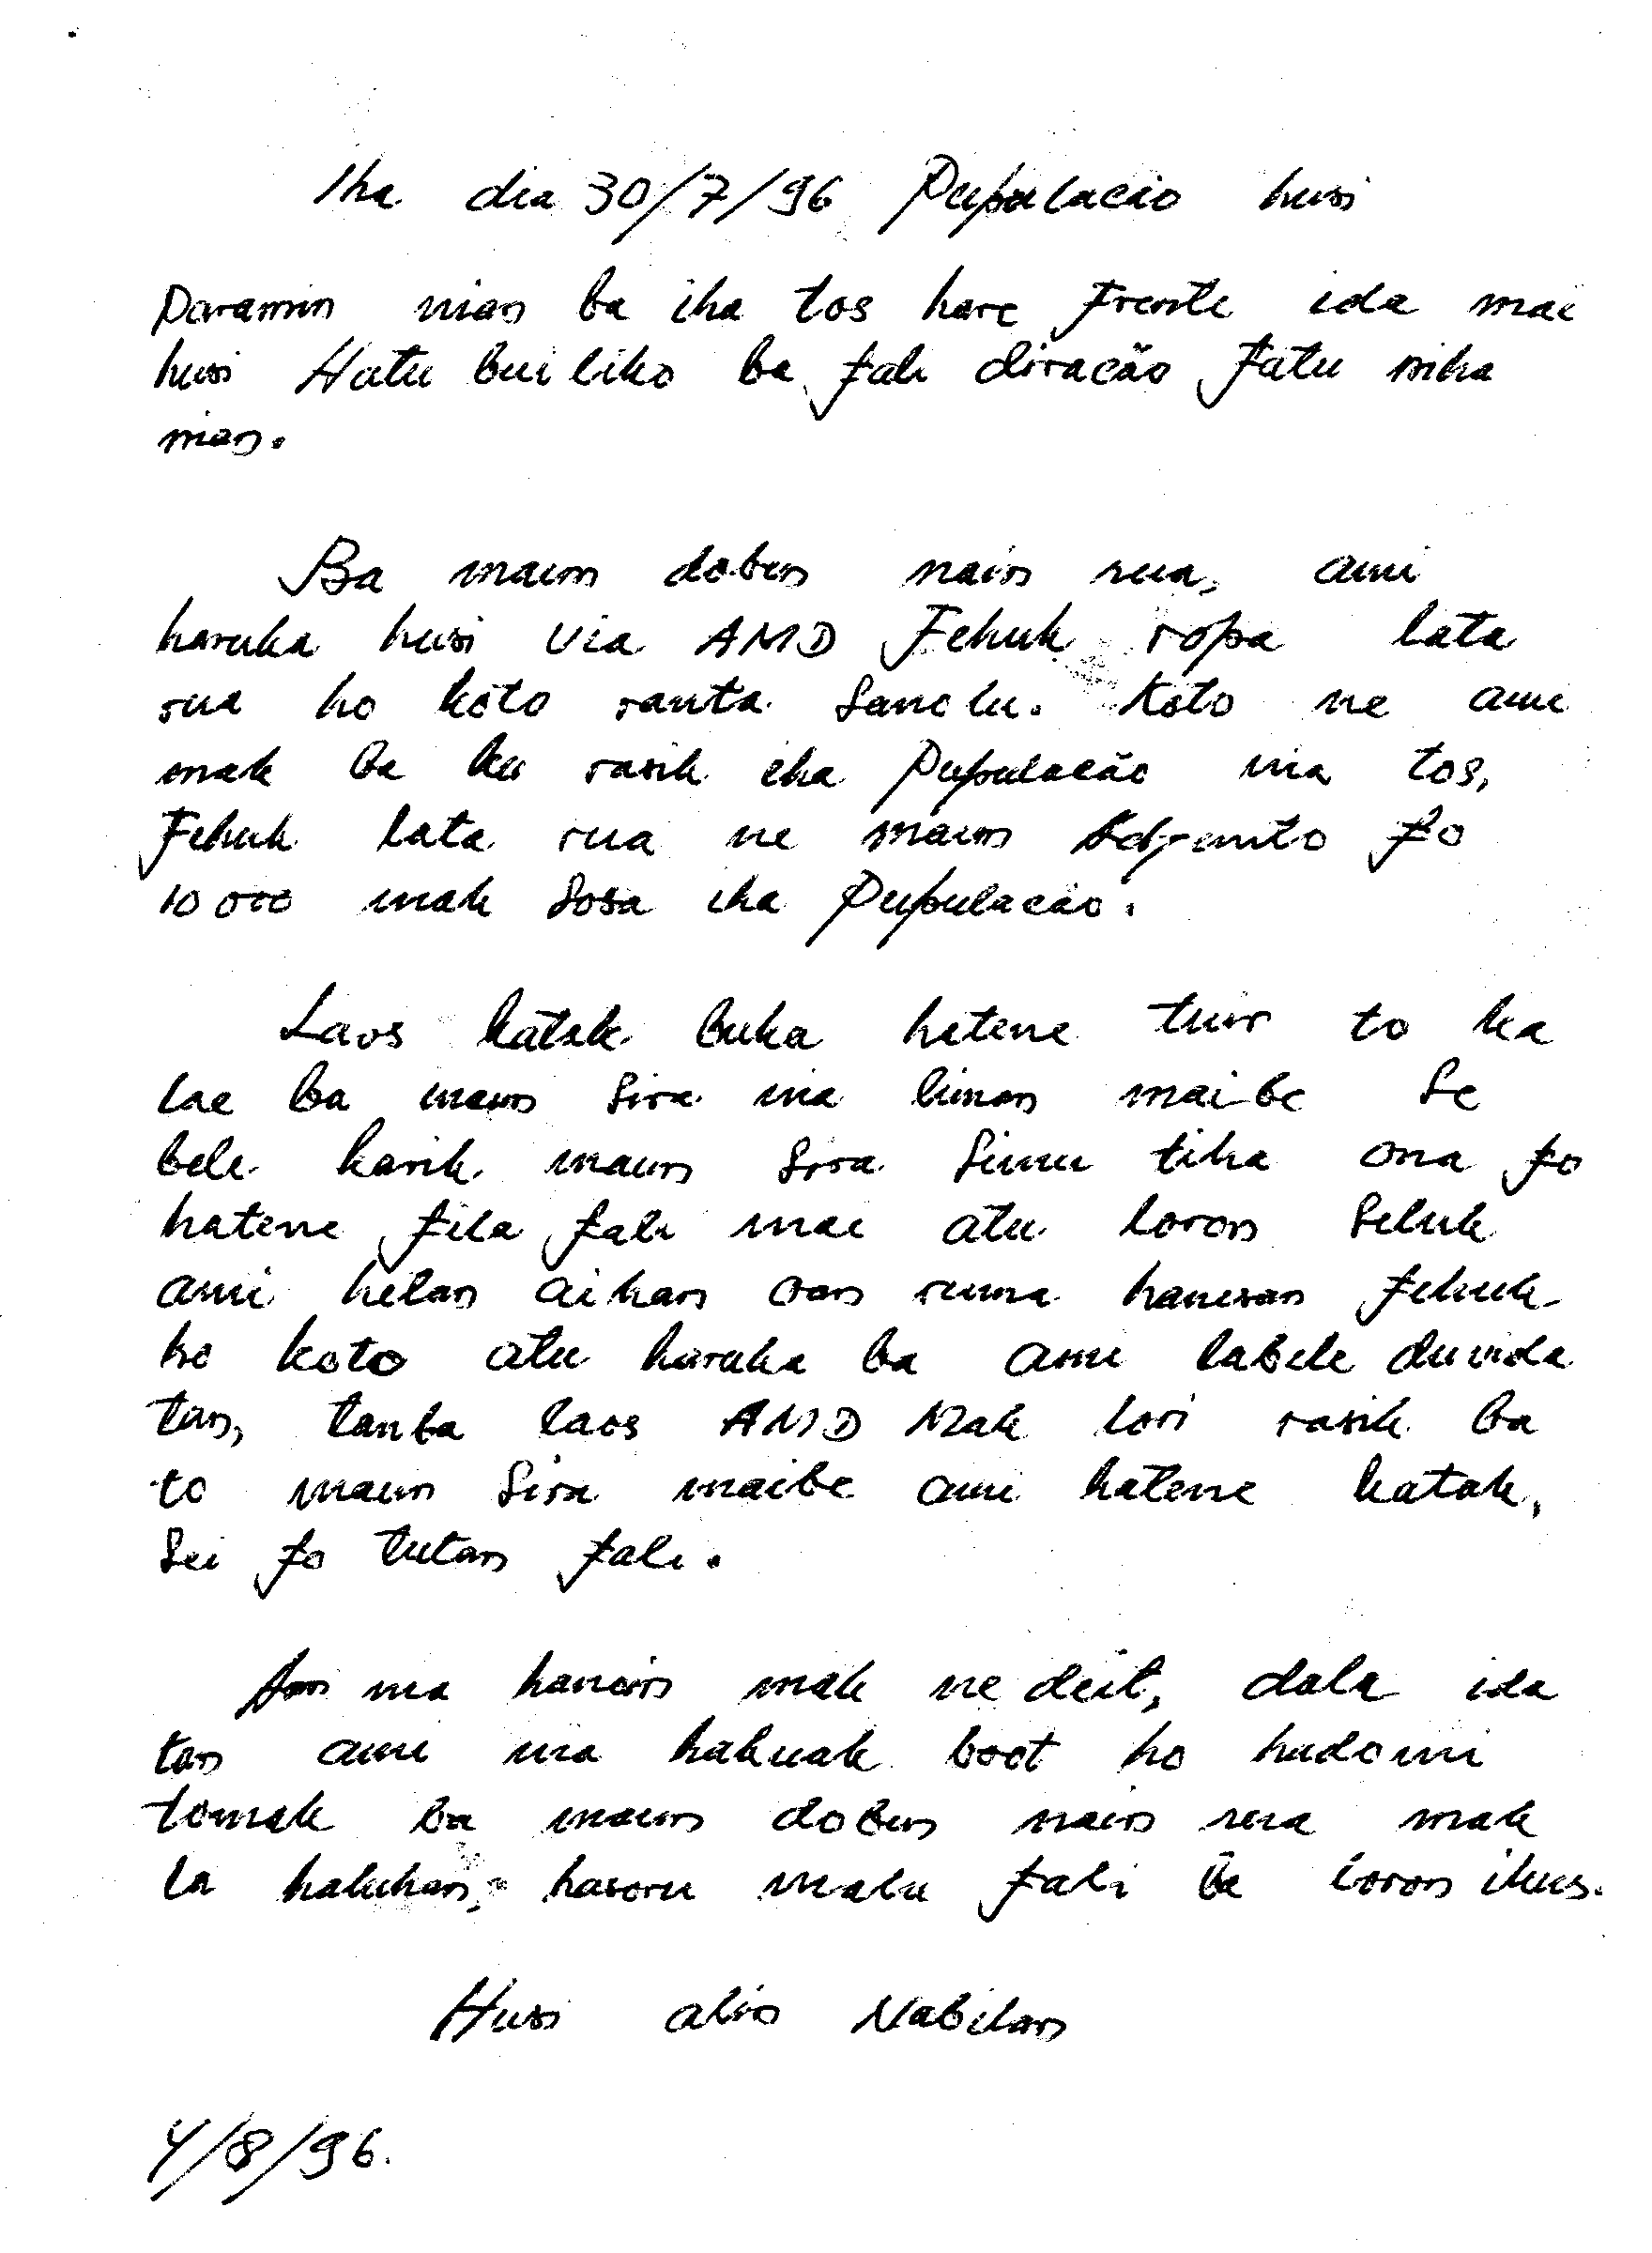 Iha dia 30/7/96 Pupulacão husi
Daramin nian ba iha tos hare Frente ida mai
husi Hatu builiko ba fali diracão Fatu niha
nian.
Ba maun doben nain rua, ami
haruka husi via AMD Fehuk ropa lata
rua ho koto ranta sanolu. Koto ne ami
mak ba ku rasik iha Pupulacão nia tos,
Fehuk lata rua ne maun Adjunto fo
10000 mak sosa iha Pupulacão.
Laos katak buka hatene tuir to ka
lae ba maun sira nia liman maibe se
bele karik maun sira simu tiha ona fo
hatene fila fali mai atu loron seluk
ami hetan aihan oan ruma hanesan fehuk
ho koto atu haruka ba ami labele duvida
tan, tanba laos AMD Mak lori rasik ba
to maun sira maibe ami hatene katak,
sei fo tutan fali.
nia hanoin mak ne deit, dala ida
tan ami nia hakuak boot ho hadomi
tomak ba maun doben nain rua mak
la haluhan, hasoru malu fali ba loron ikus.
Husi alin Nabilan
4/8/96.